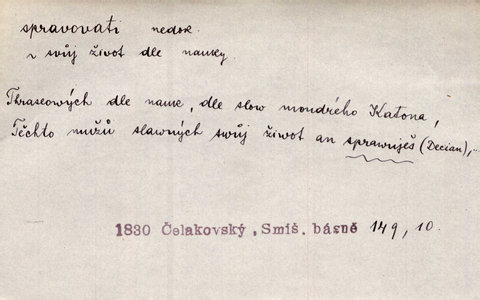 spravovati nedok.
~ svůj život dle nauky.
Thraseových dle nauk, dle slow moudrého Katona,
Těchto mužů slawných swůj žiwot an sprawuješ (Decian),..
1830 Čelakovský, Smíš. básně 149, 10.